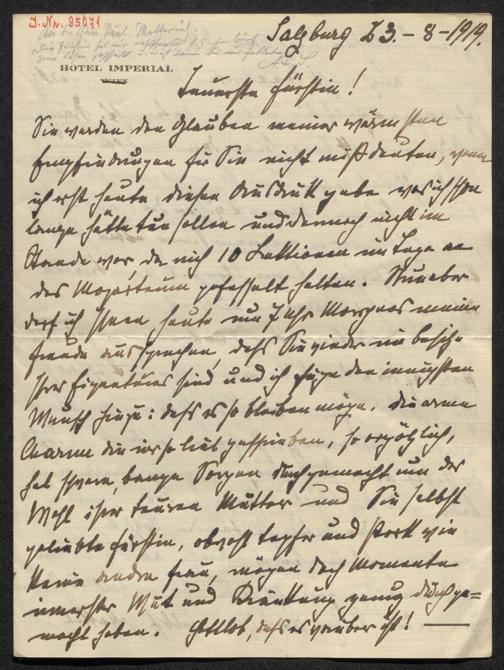 J. Nr. 95071
Salzburg 23. - 8 - 1919.
HÔTEL IMPERIAL
WIEN
Teuerste Fürstin!
Sie werden den Glauben meiner wärmsten
Empfindungen für Sie nicht mißdeuten, wenn
ich erst heute diesen Ausdruck gebe was ich schon
lange hätte tun sollen und dennoch nicht im
Stande war da mich 10 Lektionen im Tage an
das Mozarteum gefesselt halten. Nun aber
darf ich Ihnen heute um 7 Uhr Morgens meine
Freude aussprechen, dass Sie wieder im Besitze
Ihrer Eigentumes sind und ich füge den innigsten
Wunsch hinzu: dass es so bleiben möge. Die arme
die mir so lieb geschrieben, so ergötzlich,
hat schwere, bange Sorgen durchgemacht um das
Wohl ihrer teuren Mutter und Sie selbst
geliebte Fürstin, obwohl tapfer und stark wie
keine andre Frau, mögen doch Momente
innerster Wut und Kränkung genug durchge=
macht haben. Gottlob, dass es vorüber ist!